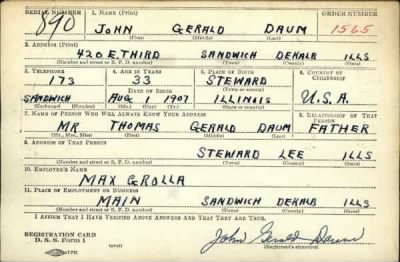 SERIAL NUMBER 1. NAME (Print) ORDER NUMBER
890 JOHN GERALD DAUM 1565
(First) (Middle) (Last)
2. ADDRESS (Print)
420 E. THIRD SANDWICH DEKALB ILLS
(Number and street or R. F. D. number) (Town) (County) (State)
3. TELEPHONE 4. AGE IN YEARS 5. PLACE OF BIRTH 6. COUNTRY OF CITIZENSHIP
173 33 STEWARD
DATE OF BIRTH (Town or county)
SANDWICH AUG 1907 ILLINOIS U.S.A.
(Exchange) (Number) (Mo.) (Day) (Yr.) (State or country)
7. NAME OF PERSON WHO WILL ALWAYS KNOW YOUR ADDRESS 8. RELATIONSHIP OF THAT PERSON
MR THOMAS GERALD DAUM FATHER
(Mr., Mrs., Miss) (First) (Middle) (Last)
9. ADDRESS OF THAT PERSON
STEWARD LEE ILLS
(Number and street or R. F. D. number) (Town) (County) (State)
10. EMPLOYER'S NAME
MAX GROLLA
11. PLACE OF EMPLOYMENT OR BUSINESS
MAIN SANDWICH DEKALB ILLS
(Number and street or R. F. D. number) (Town) (County) (State)
I AFFIRM THAT I HAVE VERIFIED ABOVE ANSWERS AND THAT THEY ARE TRUE.
REGISTRATION CARD
D. S. S. Form 1 John Gerald Daum
(Registrant's signature)